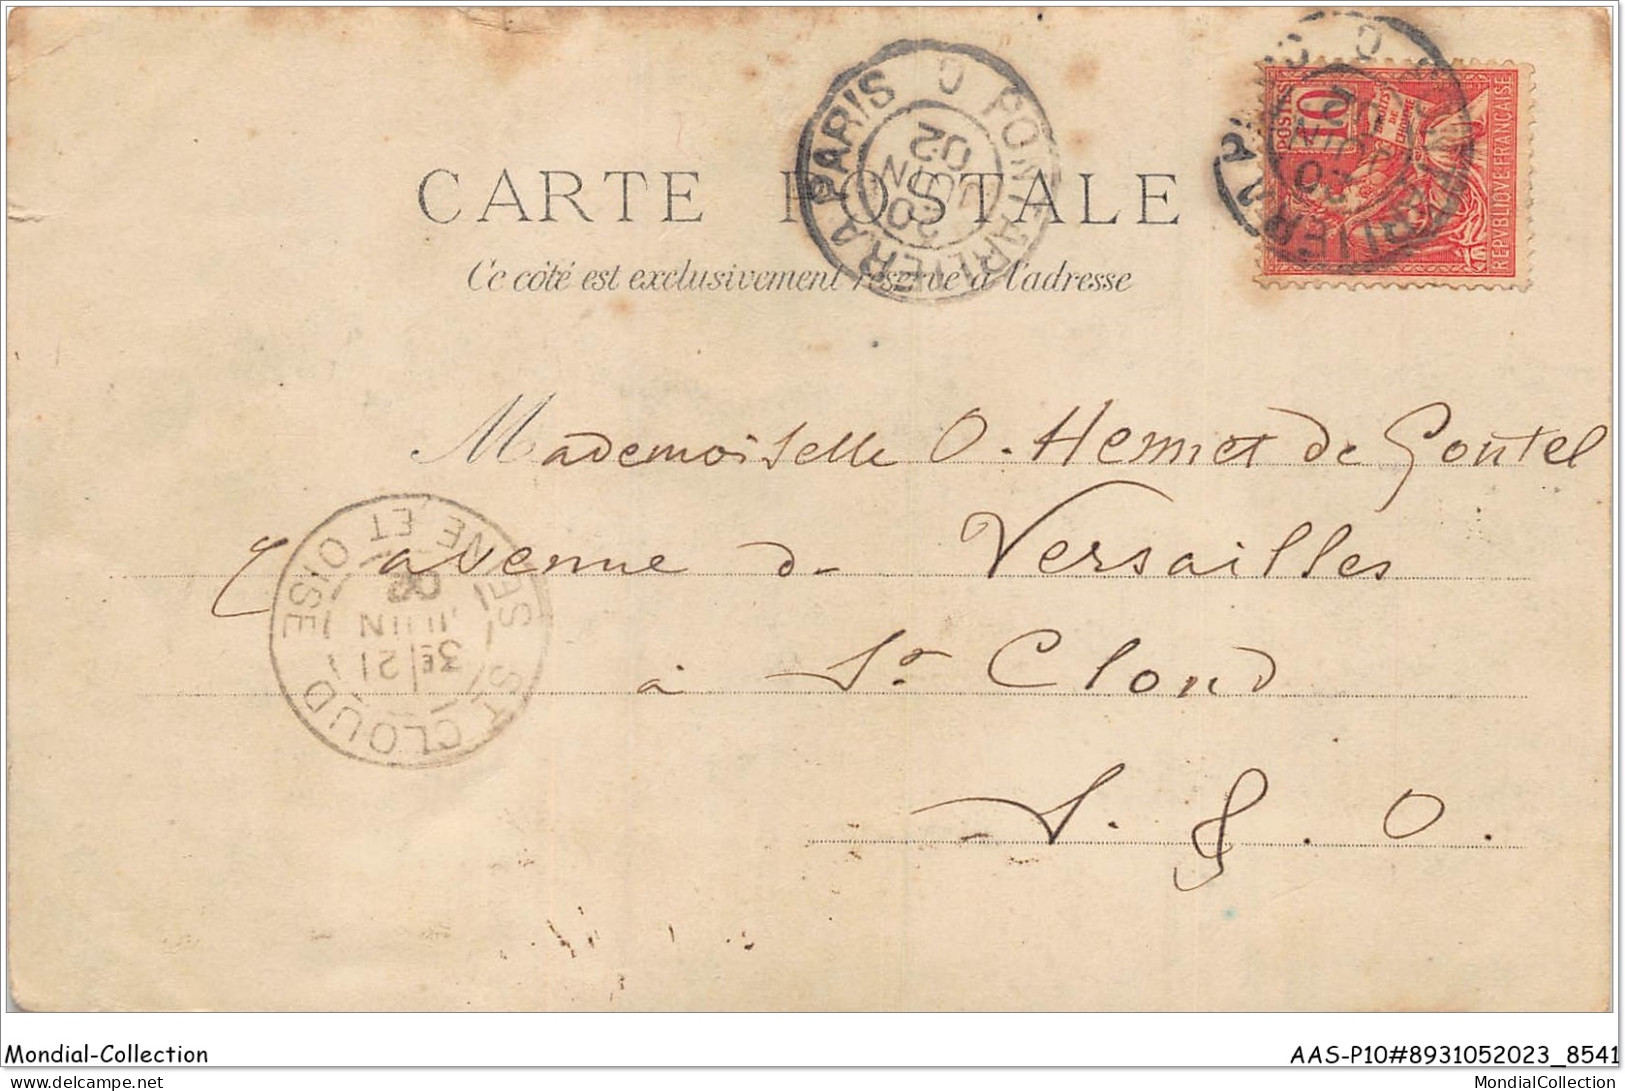 CARTE POSTALE
Ce côté est exclusivement réservé à l'adresse
PONTARLIER A PARIS
20
JUIN
02
POSTES
10
DROITS
DE
L'HOMME
REPVBLIQVE FRANÇAISE
Mademoiselle O. Hennet de Goutel
7 avenue de Versailles
à St Cloud
S. & O.
ST CLOUD
SEINE ET OISE
3E 21
JUIN
02
Mondial-Collection
AAS-P10#8931052023_8541
delcampe.net
MondialCollection